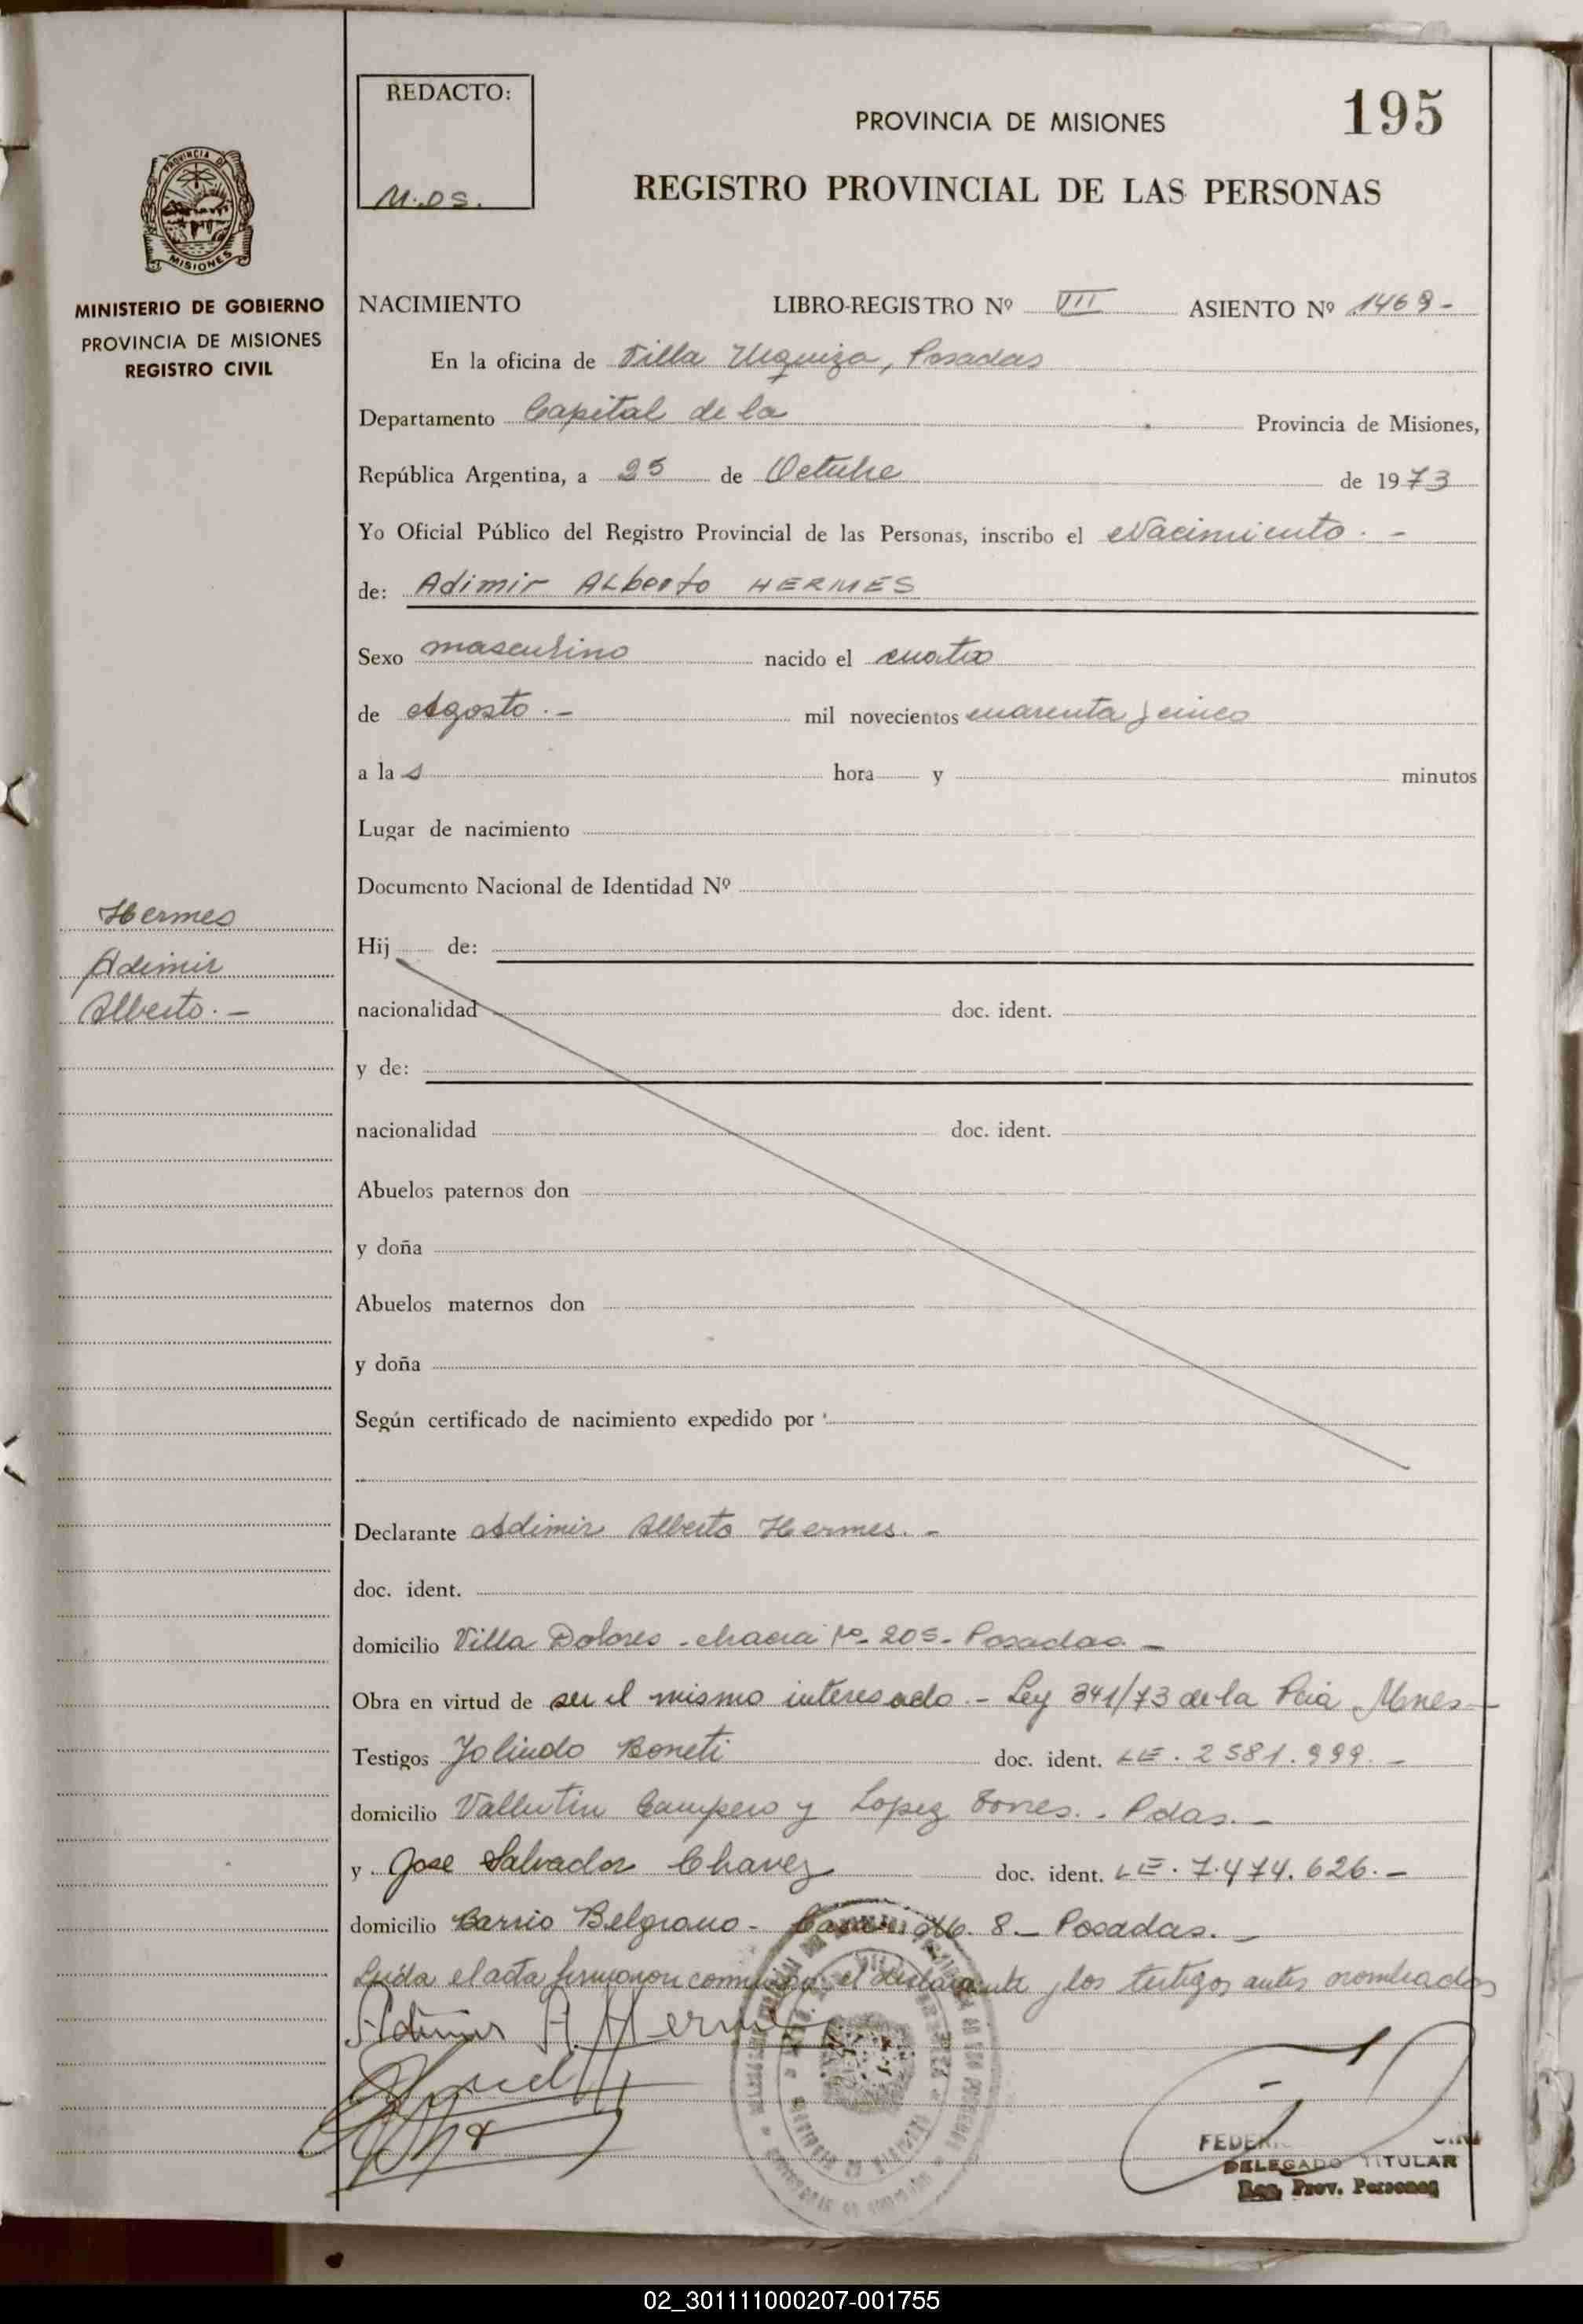 REDACTO:
M.DS.
PROVINCIA DE MISIONES
195
REGISTRO PROVINCIAL DE LAS PERSONAS
PROVINCIA DE
MISIONES
MINISTERIO DE GOBIERNO
PROVINCIA DE MISIONES
REGISTRO CIVIL
NACIMIENTO LIBRO-REGISTRO Nº VII ASIENTO Nº 1469-
En la oficina de Villa Urquiza, Posadas
Departamento Capital de la Provincia de Misiones,
República Argentina, a 25 de Octubre de 1973
Yo Oficial Público del Registro Provincial de las Personas, inscribo el Nacimiento.-
de: Adimir Alberto HERMES
Sexo masculino nacido el cuatro
de Agosto.- mil novecientos cuarenta y cinco
a la s hora y minutos
Lugar de nacimiento
Documento Nacional de Identidad Nº
Hermes
Adimir
Alberto.-
Hij de:
nacionalidad doc. ident.
y de:
nacionalidad doc. ident.
Abuelos paternos don
y doña
Abuelos maternos don
y doña
Según certificado de nacimiento expedido por
Declarante Adimir Alberto Hermes.-
doc. ident.
domicilio Villa Dolores - chacra Nº 205- Posadas.-
Obra en virtud de ser el mismo interesado.- Ley 341/73 de la Pcia Mnes-
Testigos Jolindo Boneti doc. ident. LE. 2581.999.-
domicilio Vallentin Campero y Lopez Torres.- Pdas.-
y Jose Salvador Chavez doc. ident. LE. 7.474.626.-
domicilio Barrio Belgrano- Casa 8- Posadas.-
Leida el acta firmaron conmigo el declarante y los testigos antes nombrados
Adimir A. Hermes
DELEGADO TITULAR
Reg. Prov. Personas
02_301111000207-001755